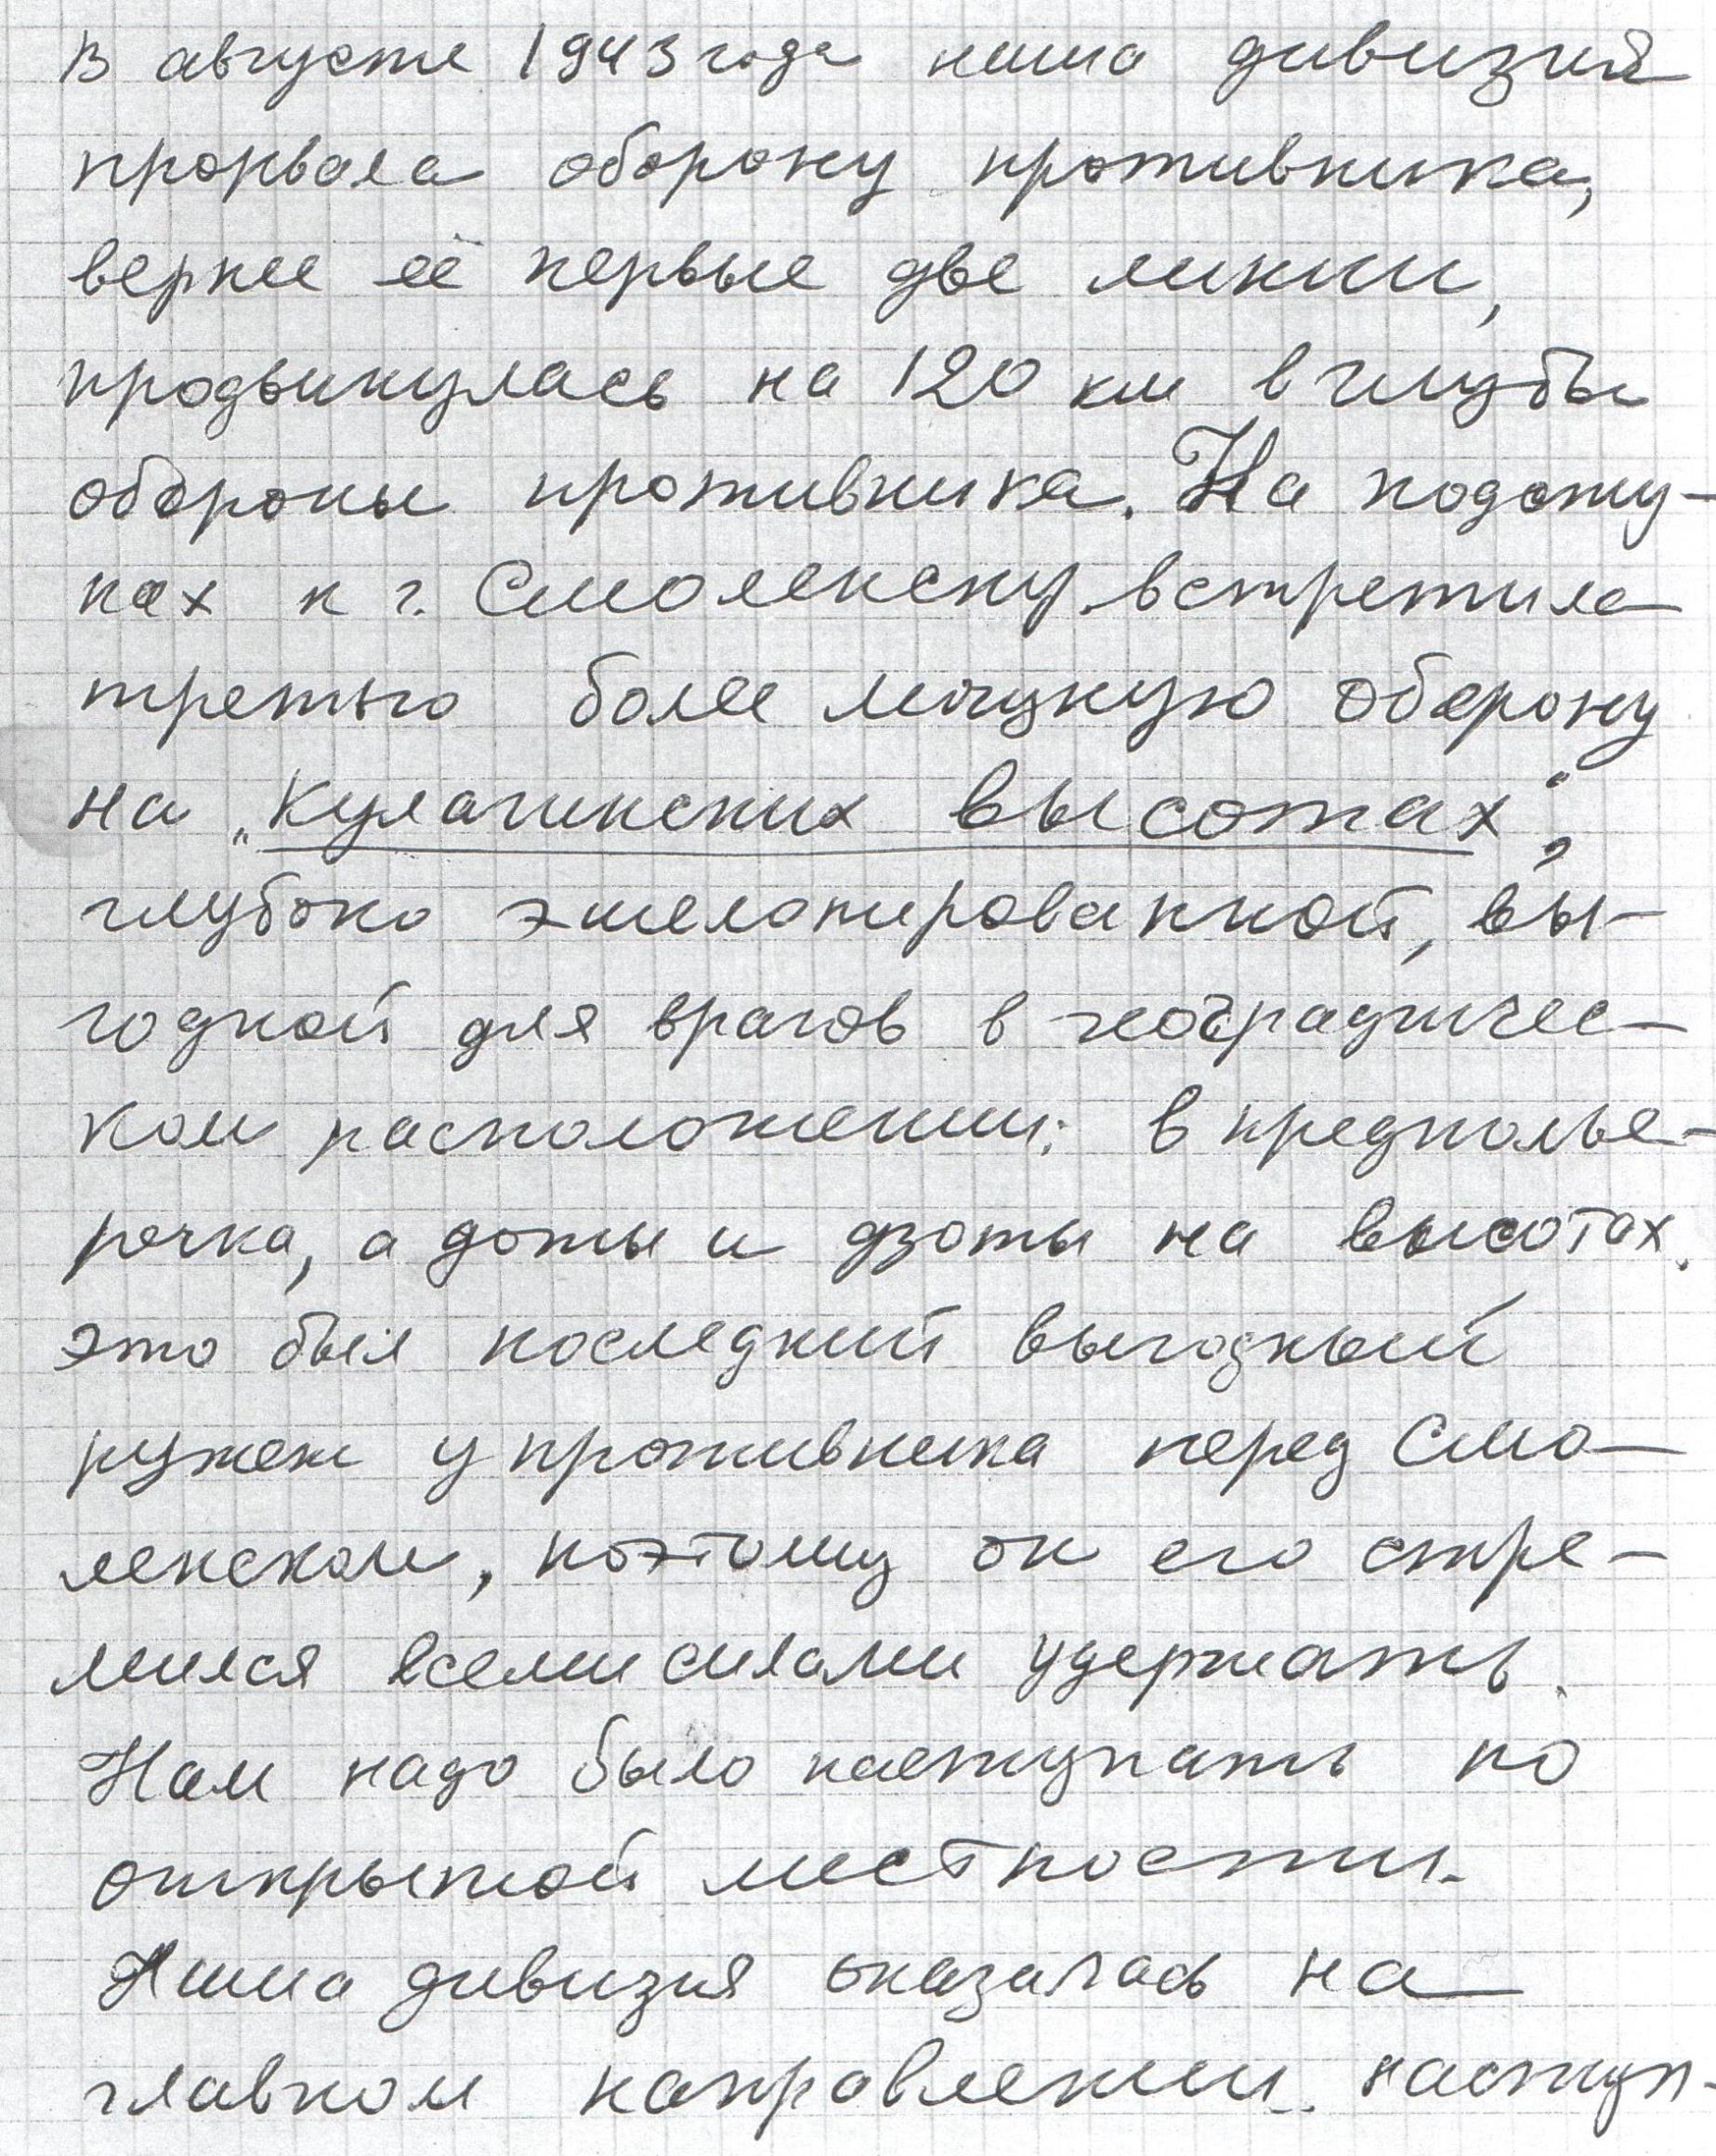 В августе 1943 года наша дивизия
прорвала оборону противника,
вернее её первые две линии,
продвинулась на 120 км в глубь
обороны противника. На подсту-
пах к г. Смоленску встретила
третью более мощную оборону
на „Кулагинских высотах",
глубоко эшелонированной, вы-
годной для врагов в географичес-
ком расположении: в предполье -
речка, а доты и дзоты на высотах.
Это был последний выгодный
рубеж у противника перед Смо-
ленском, поэтому он его стре-
мился всеми силами удержать.
Нам надо было наступать по
открытой местности.
Наша дивизия оказалась на
главном направлении наступ-